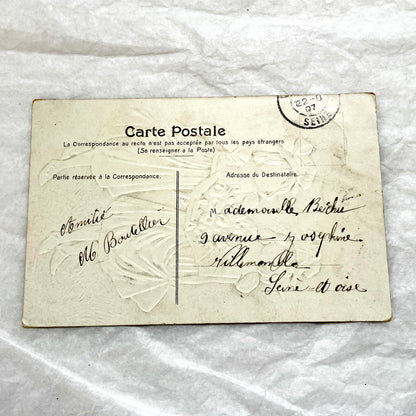 22-8
07
SEINE
Carte Postale
La Correspondance au recto n'est pas acceptée par tous les pays éfrangers
(Se renseigner à la Poste)
Partie réservée à la Correspondance.
Adresse du Destinataire.
Amitié
M Boutellier
Mademoiselle Berthe
9 avenue Josephine
Seine et oise